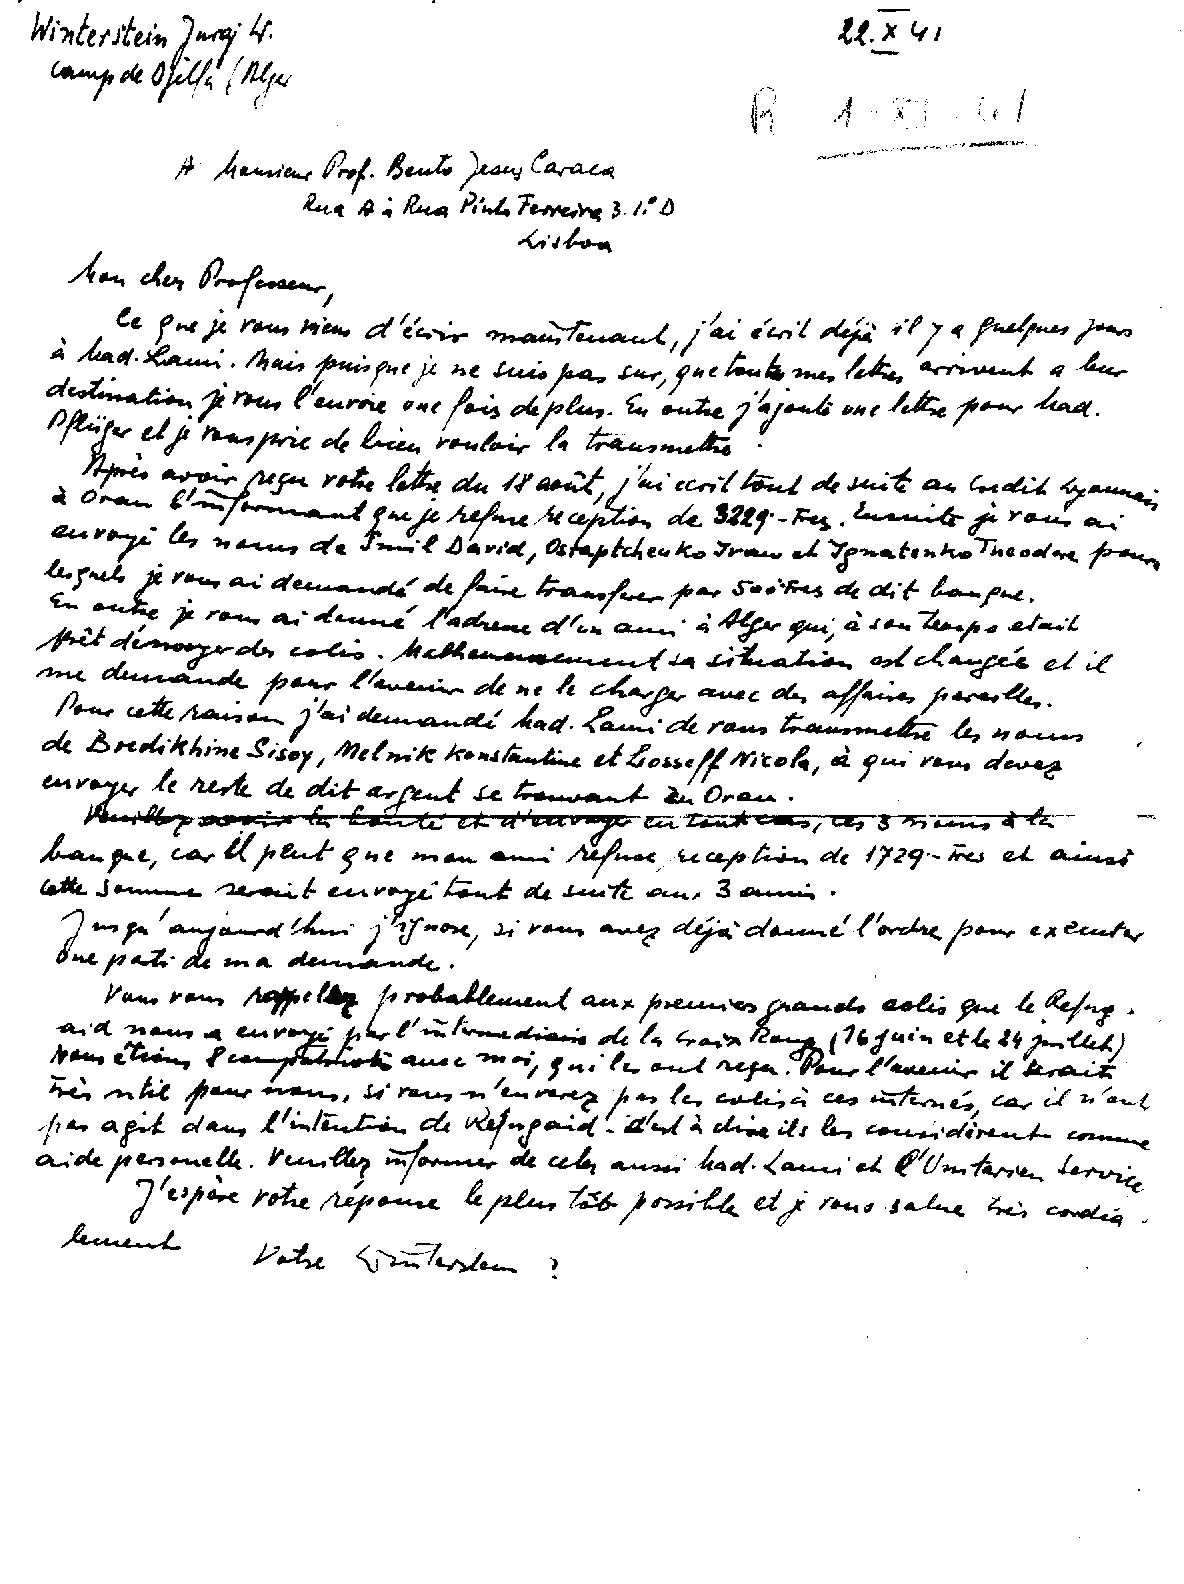 Winterstein Jurij W.
Camp de Djelfa (Alger
22.X 41
R 1-XI-41
A Monsieur Prof. Bento Jesus Caraca
Rua A à Rua Pinto Ferreira 3.1.º D
Lisboa
Mon cher Professeur,
Ce que je vous viens d'écrir maintenant, j'ai écrit déjà il y a quelques jours
à Mad. Lami. Mais puisque je ne suis pas sur, que toutes mes lettres arrivent a leur
destination je vous l'envoie une fois de plus. En outre j'ajoute une lettre pour Mad.
Pflüger et je vous prie de bien vouloir la transmettre.
Après avoir reçu votre lettre du 18 août, j'ai ecrit tout de suite au Credit Lyonnais
à Oran l'informant que je refuse reception de 3229.- Frcs. Ensuite je vous ai
envoyé les noms de Smil David, Ostaptchenko Ivan et Ignatenko Theodore pour
lesquels je vous ai demandé de faire transferer par 500 Frcs de dit banque.
En outre je vous ai donné l'adresse d'un ami à Alger qui, à son temps etait
prêt d'envoyer des colis. sa situation est changée et il
me demande pour l'avenir de ne le charger avec des affaires pareilles.
Pour cette raison j'ai demandé Mad. Lami de vous transmettre les noms
de Bredikhine Sisoy, Melnik Konstantine et Losseff Nicola, à qui vous devez
envoyer le reste de dit argent se trouvant en Oran.
Veuillez avoir la bonté et d'envoyer en tout cas, ces 3 noms à la
banque, car il peut que mon ami refuse reception de 1729.- Frcs et ainsi
cette somme serait envoyé tout de suite aux 3 amis.
Jusqu'aujourd'hui j'ignore, si vous avez déjà donné l'ordre pour executer
une parti de ma demande.
Vous vous rappellez probablement aux premiers grands colis que le Refug-
aid nous a envoyé par l'intermediaire de la Croix Rouge (16 juin et le 24 juillet)
Nous étions 8 compatriots avec moi, qui les ont reçu. Pour l'avenir il serait
très util pour nous, si vous n'enverez pas les colis à ces internés, car il n'ont
pas agit dans l'intention de Refugaid - c'est à dire ils les considèrent comme
aide personelle. Veuillez informer de cela aussi Mad. Lami et l'Unitarien Service
J'espère votre réponse le plus tôt possible et je vous salue très cordia-
lement Votre Winterstein